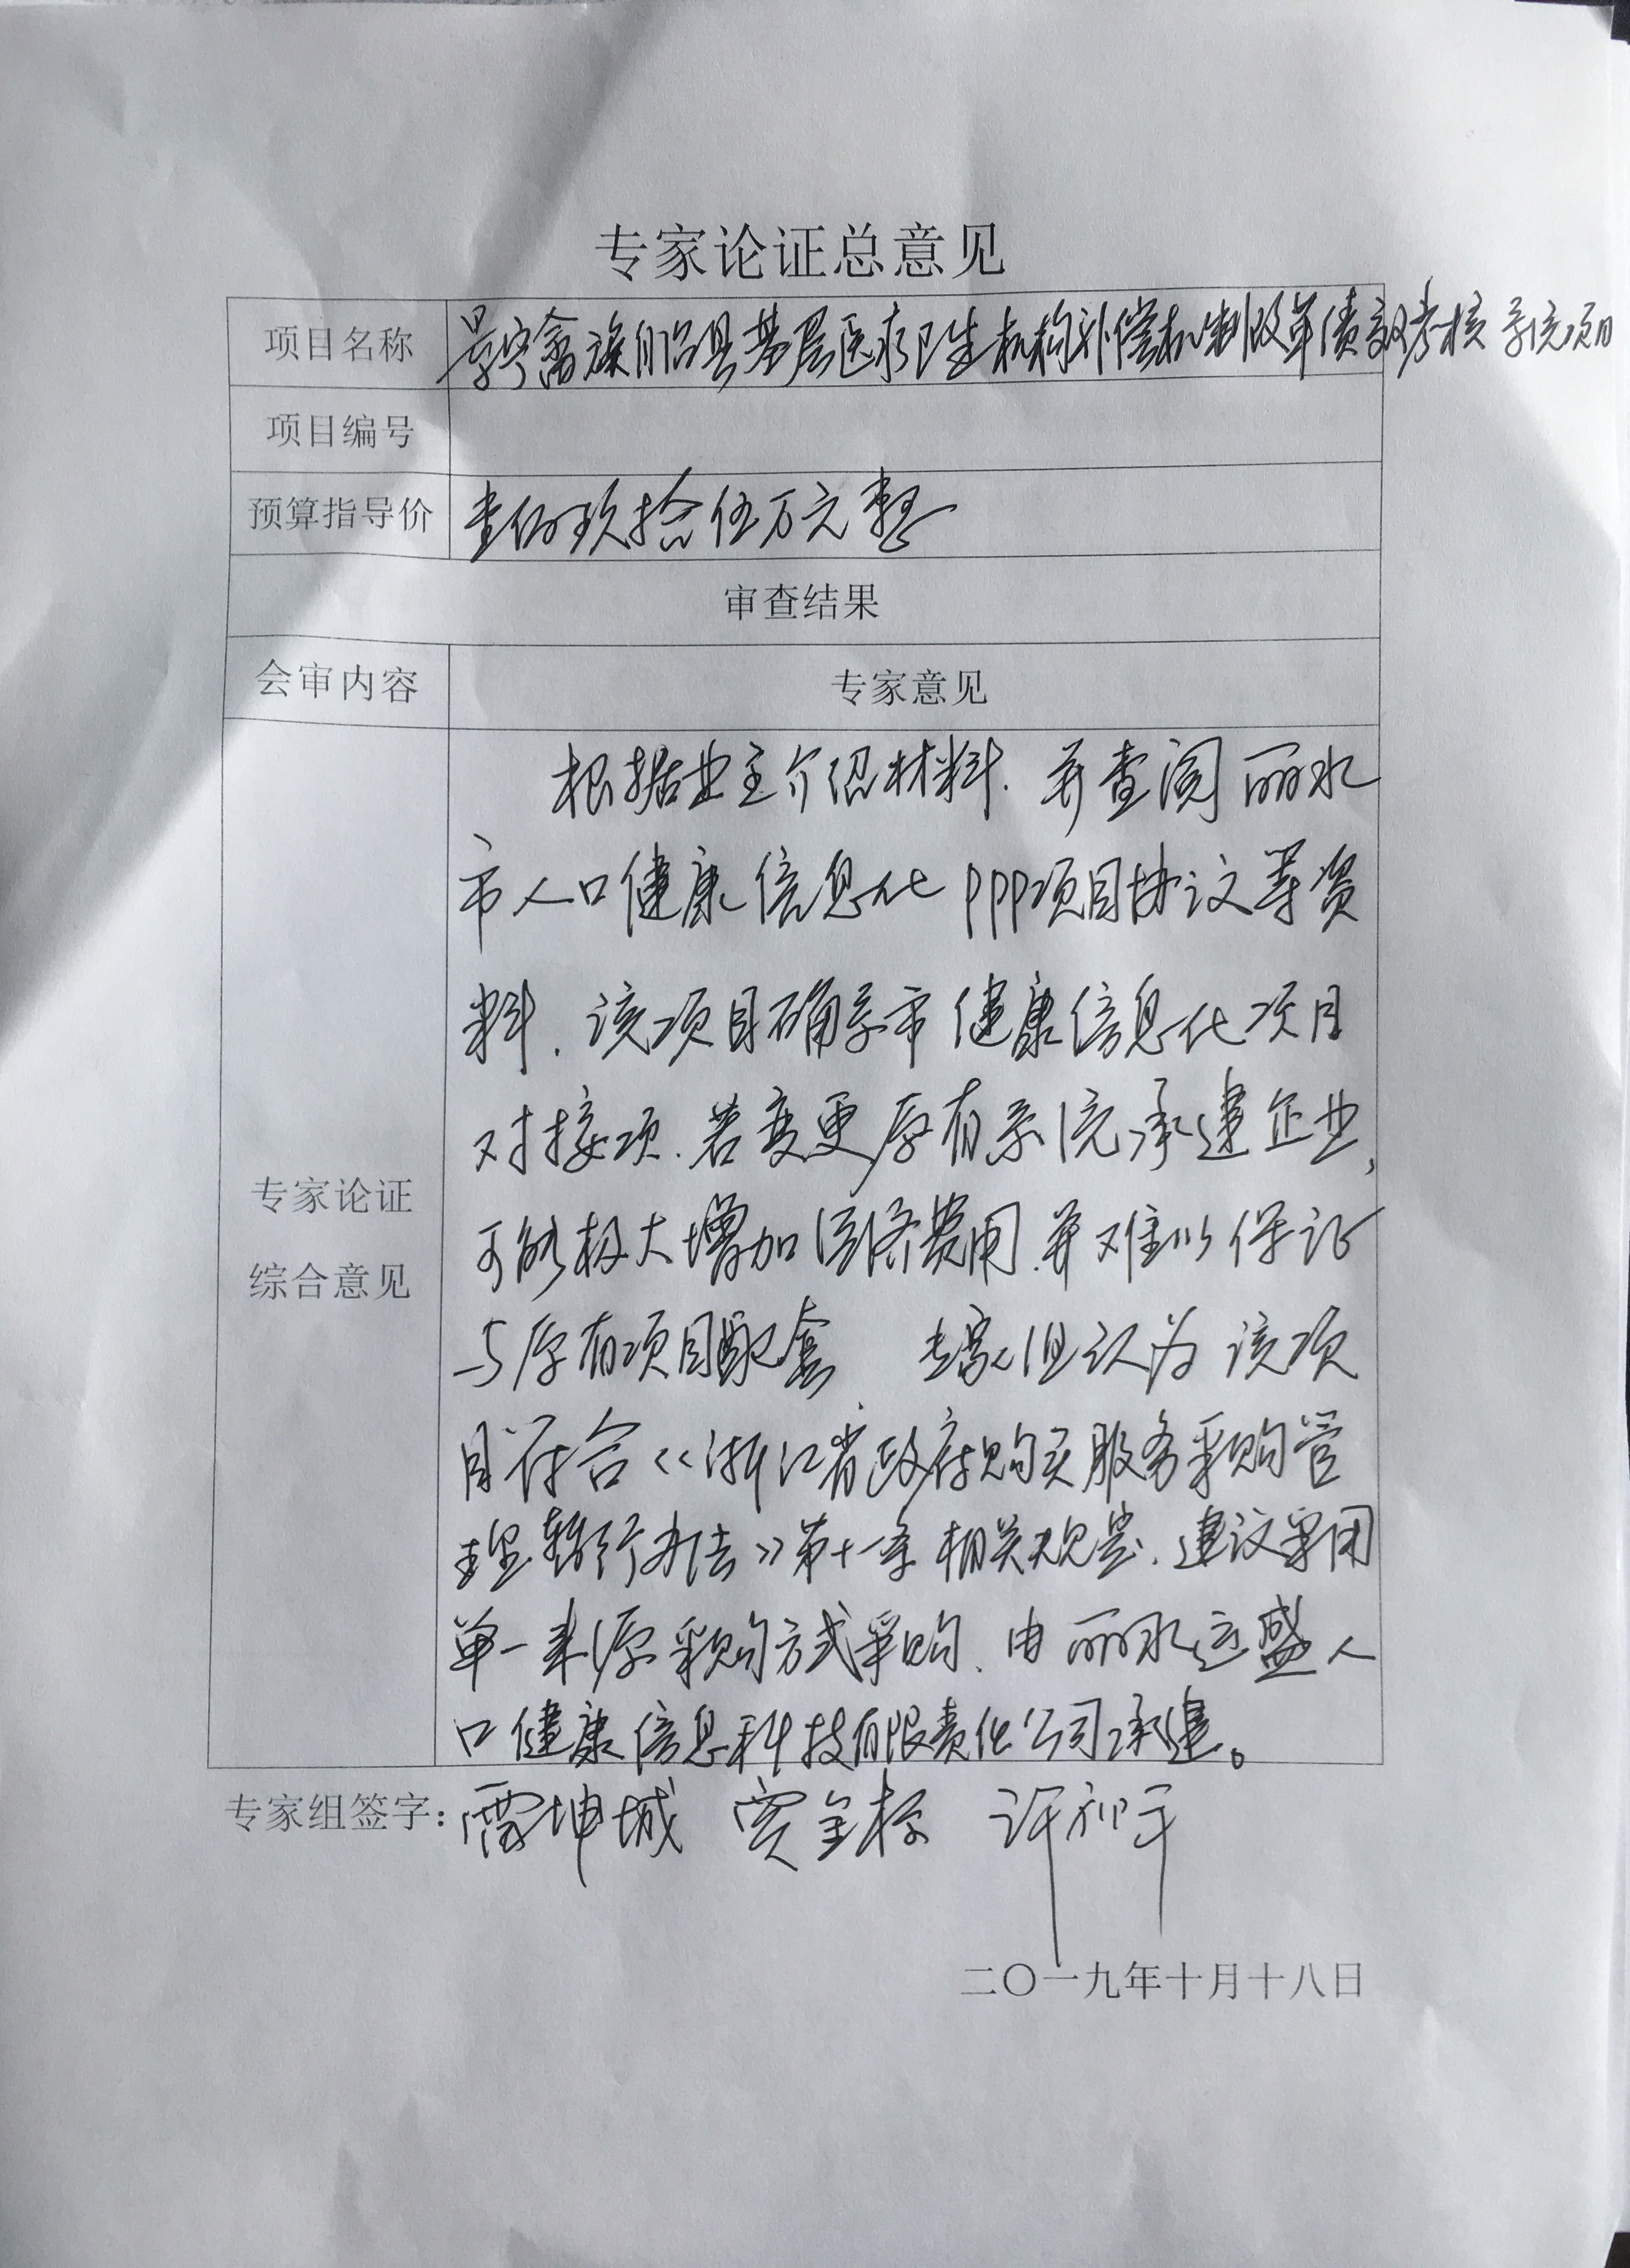 专家论证总意见
项目名称 景宁畲族自治县基层医疗卫生机构补偿机制改革绩效考核系统项目
项目编号
预算指导价 壹佰玖拾伍万元整
审查结果
会审内容 专家意见
根据业主介绍材料.并查阅丽水
市人口健康信息化PPP项目协议等资
料.该项目确系市健康信息化项目
对接项.若变更原有系统承建企业,
可能极大增加经济费用.并难以保证
专家论证
综合意见
与原有项目配套. 专家组认为该项
目符合《浙江省政府购买服务采购管
理暂行办法》第十一条相关规定.建议采用
单一来源采购方式采购.由丽水运盛人
口健康信息科技有限责任公司承建。
专家组签字: 雷坤城
二〇一九年十月十八日